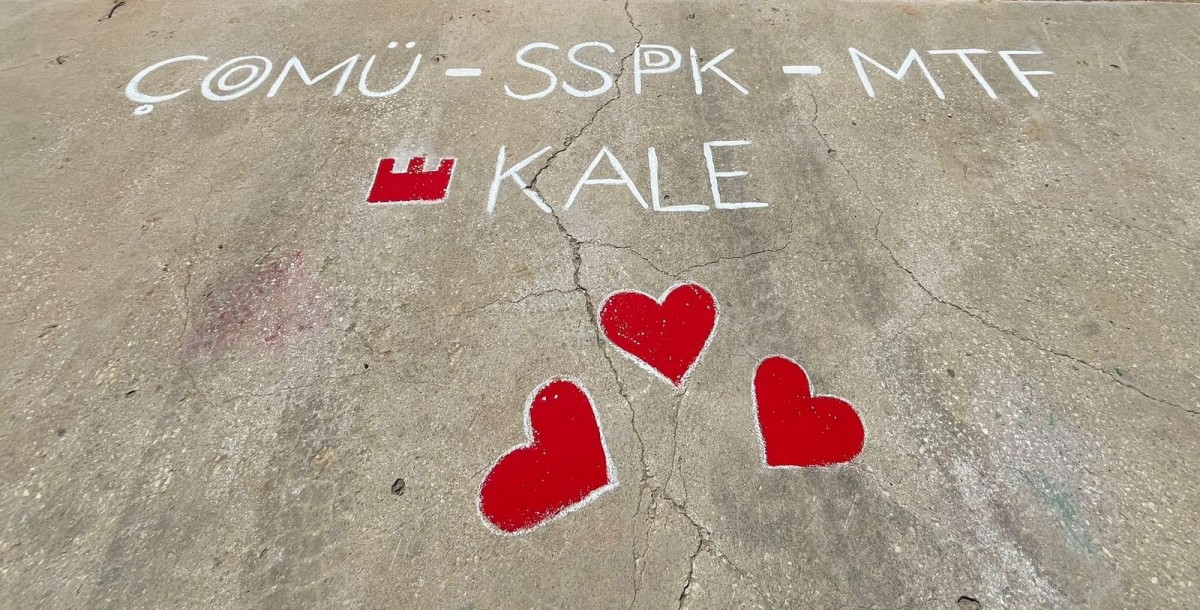 ÇOMÜ - SSPK - MTF
KALE